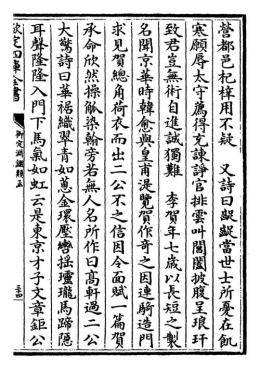 營都邑杞梓用不疑　又詩曰齪齪當世士所憂在飢
寒願辱太守薦得充諫諍官排雲叫閶闔披腹呈琅玕
致君豈無術自進誠獨難　李賀年七歲以長短之製
名聞京華時韓愈與皇甫湜覽賀作奇之因連騎造門
求見賀總角荷衣而出二公不之信因令面賦一篇賀
承命欣然操觚染翰旁若無人名所作曰高軒過二公
大驚詩曰華裾織翠青如蔥金環壓轡搖玲瓏馬蹄隱
耳聲隆隆入門下馬氣如虹云是東京才子文章鉅公
欽定四庫全書
御定淵鑑類函